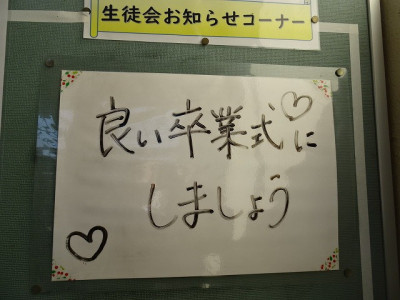 生徒会お知らせコーナー
良い卒業式に
しましょう